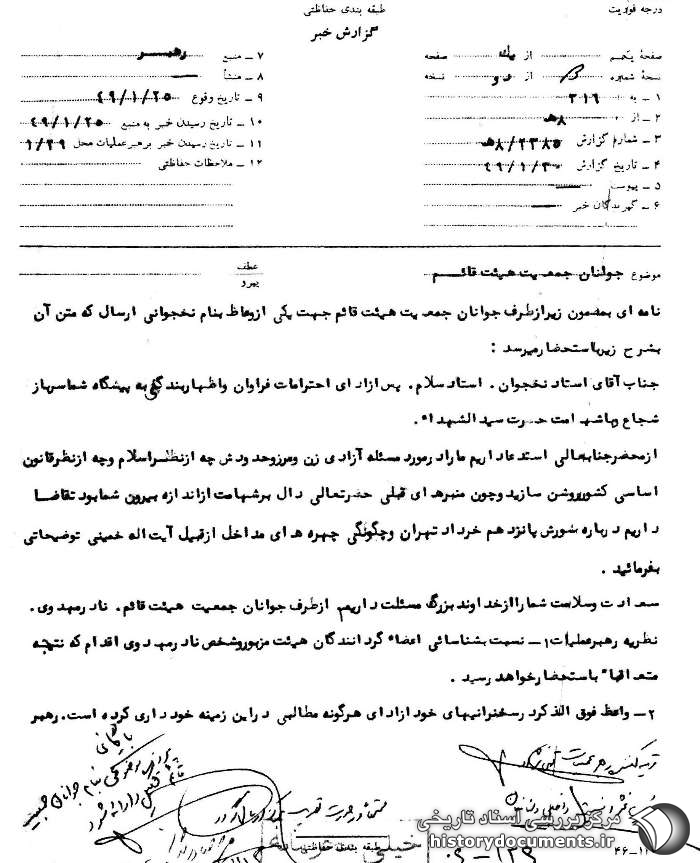 درجه فوریت
طبقه بندی حفاظتی
گزارش خبر
صفحه یکم از یک صفحه
نسخه شماره از دو نسخه
۱ – به ۳۱۶
۲ – از ۸هـ
۳ – شماره گزارش ۸/۲۳۸۵هـ
۴ – تاریخ گزارش ۴۹/۱/۳۰
۵ – پیوست
۶ – گیرندگان خبر
۷ – منبع رهبر
۸ – منشأ
۹ – تاریخ وقوع ۴۹/۱/۲۵
۱۰ – تاریخ رسیدن خبر به منبع ۴۹/۱/۲۵
۱۱ – تاریخ رسیدن خبر برهبر عملیات محل ۱/۲۹
۱۲ – ملاحظات حفاظتی
موضوع جوانان جمعیت هیئت قائم
عطف
پیرو
نامه ای بمضمون زیر از طرف جوانان جمعیت هیئت قائم جهت یکی از وعاظ بنام نخجوانی ارسال که متن آن
بشرح زیر باستحضار میرسد :
جناب آقای استاد نخجوان . استاد سلام . پس از ادای احترامات فراوان و اظهار بندگی به پیشگاه شما سرباز
شجاع و باشهامت حضرت سیدالشهداء .
از محضر جنابعالی استدعا داریم ما را در مورد مسئله آزادی زن و مرز و حدودش چه از نظر اسلام و چه از نظر قانون
اساسی کشور روشن سازید و چون منبرهای قبلی حضرتعالی دال بر شهامت از اندازه بیرون شما بود تقاضا
داریم درباره شورش پانزدهم خرداد تهران و چگونگی چهره های مداخل از قبیل آیت اله خمینی توضیحاتی
بفرمائید .
سعادت و سلامت شما را از خداوند بزرگ مسئلت داریم از طرف جوانان جمعیت هیئت قائم . نادر مهدوی .
نظریه رهبر عملیات ۱ – نسبت بشناسائی اعضاء گردانندگان هیئت مزبور و شخص نادر مهدوی اقدام که نتیجه
متعاقباً باستحضار خواهد رسید .
۲ – واعظ فوق الذکر در سخنرانیهای خود از ادای هرگونه مطالبی در این زمینه خودداری کرده است . رهبر
بایگانی
طبقه بندی حفاظتی
مرکز بررسی اسناد تاریخی
historydocuments.ir